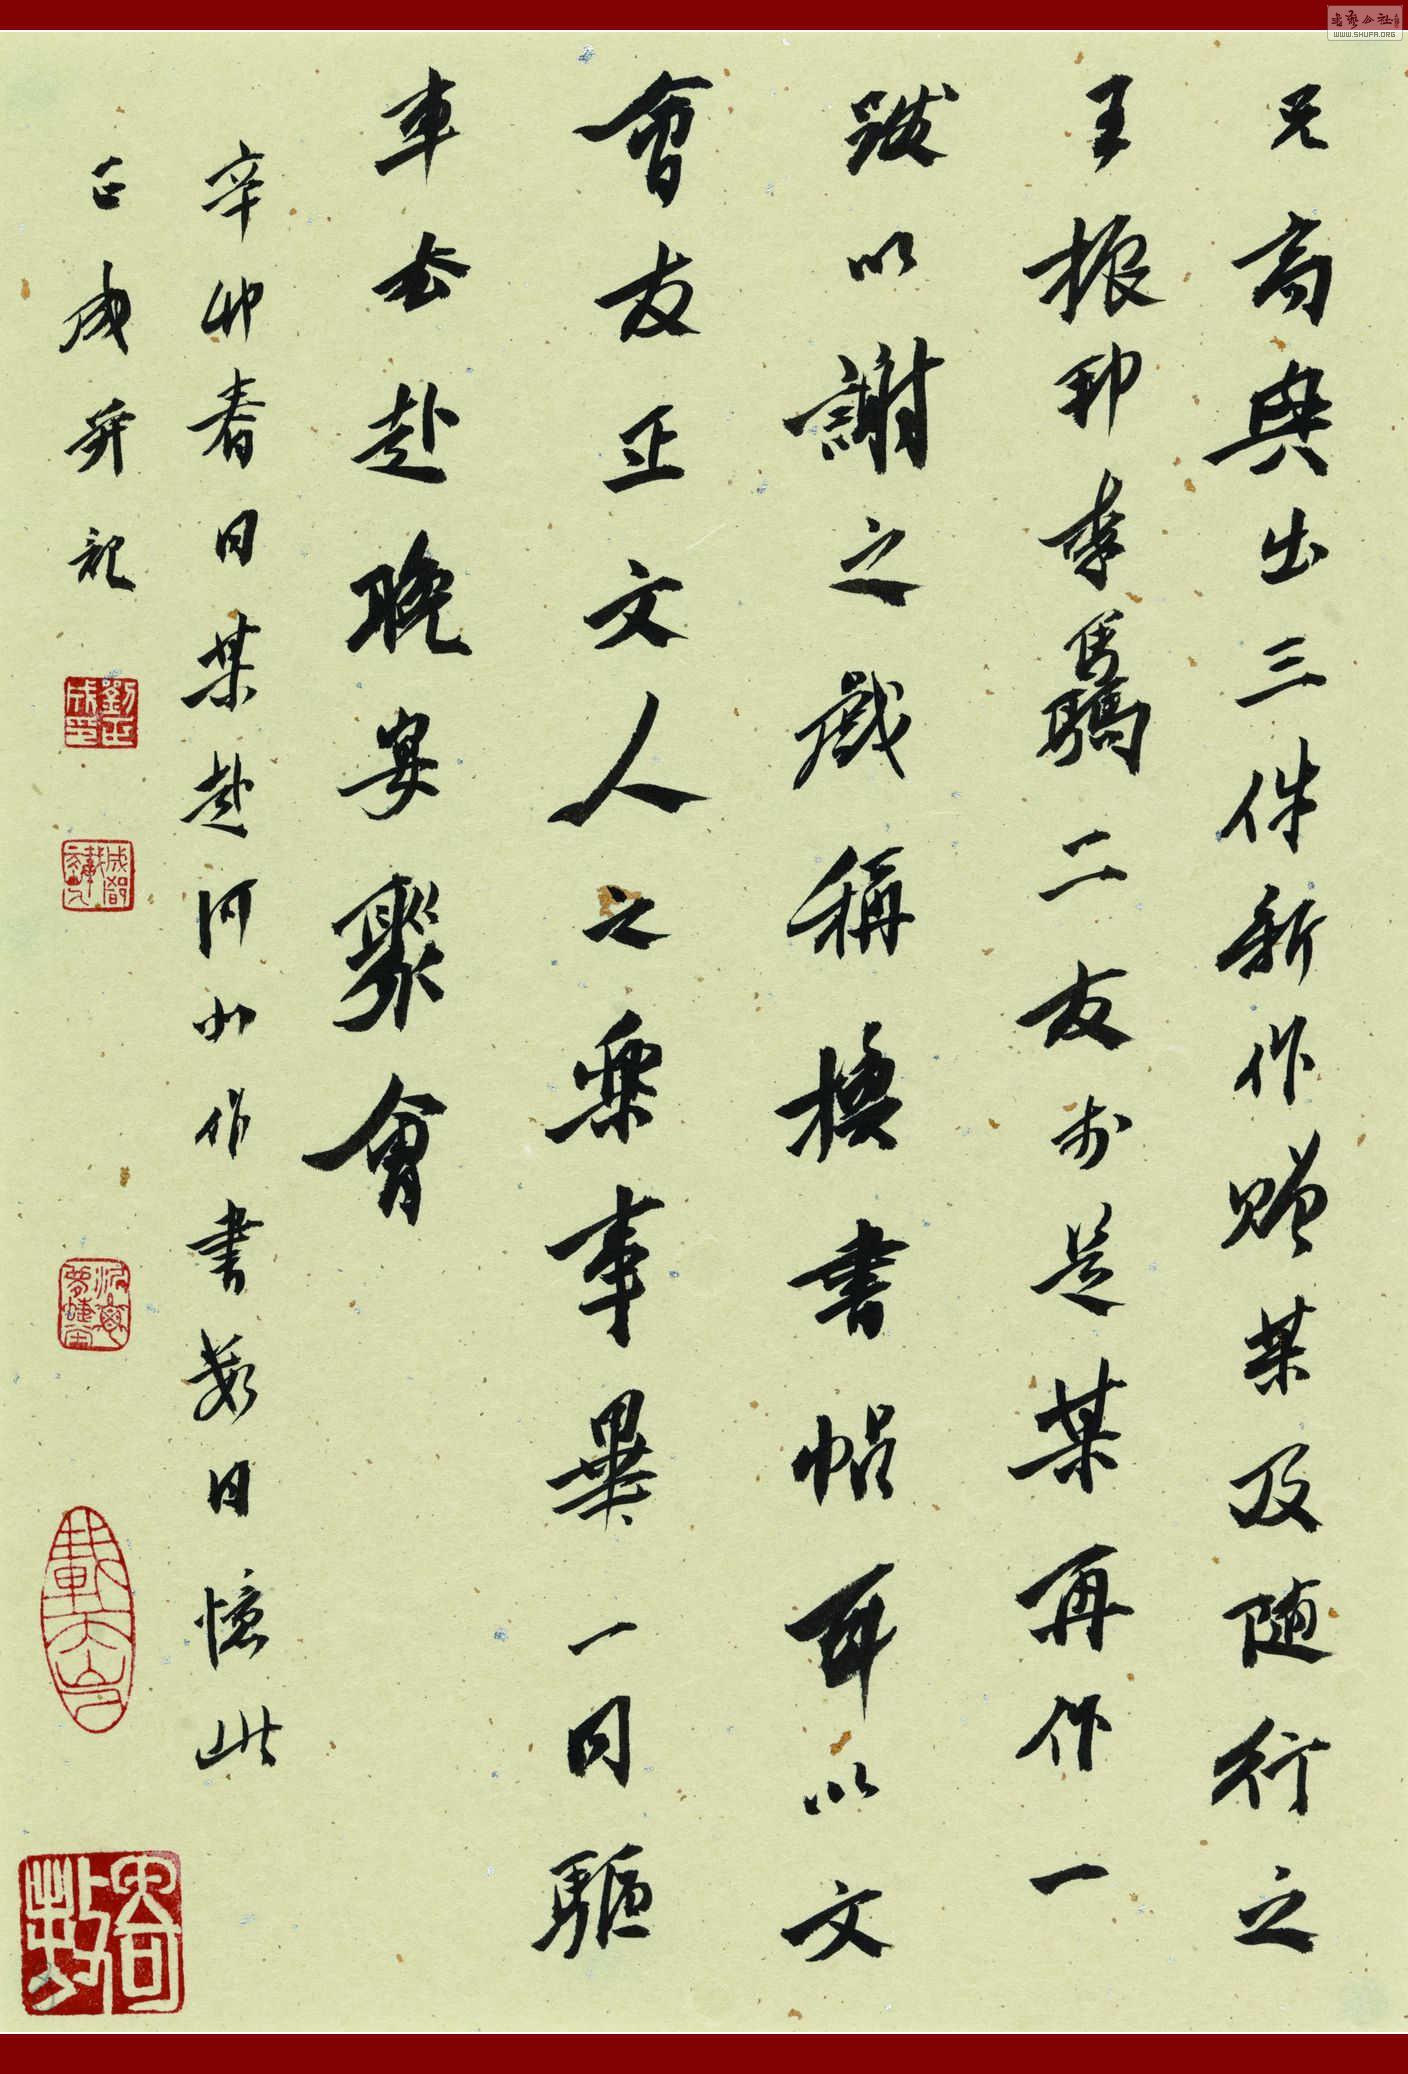 兄高興出三件新作贈某及隨行之
王振邦李馬驕二友於是某再作一
跋以謝之戲稱換書帖耳以文
會友正文人之樂事畢一同驅
車去赴晚宴聚會
辛卯春日某赴河北作書數日憶此
正成并記
劉正成印
書法公社
WWW.SHUFA.ORG